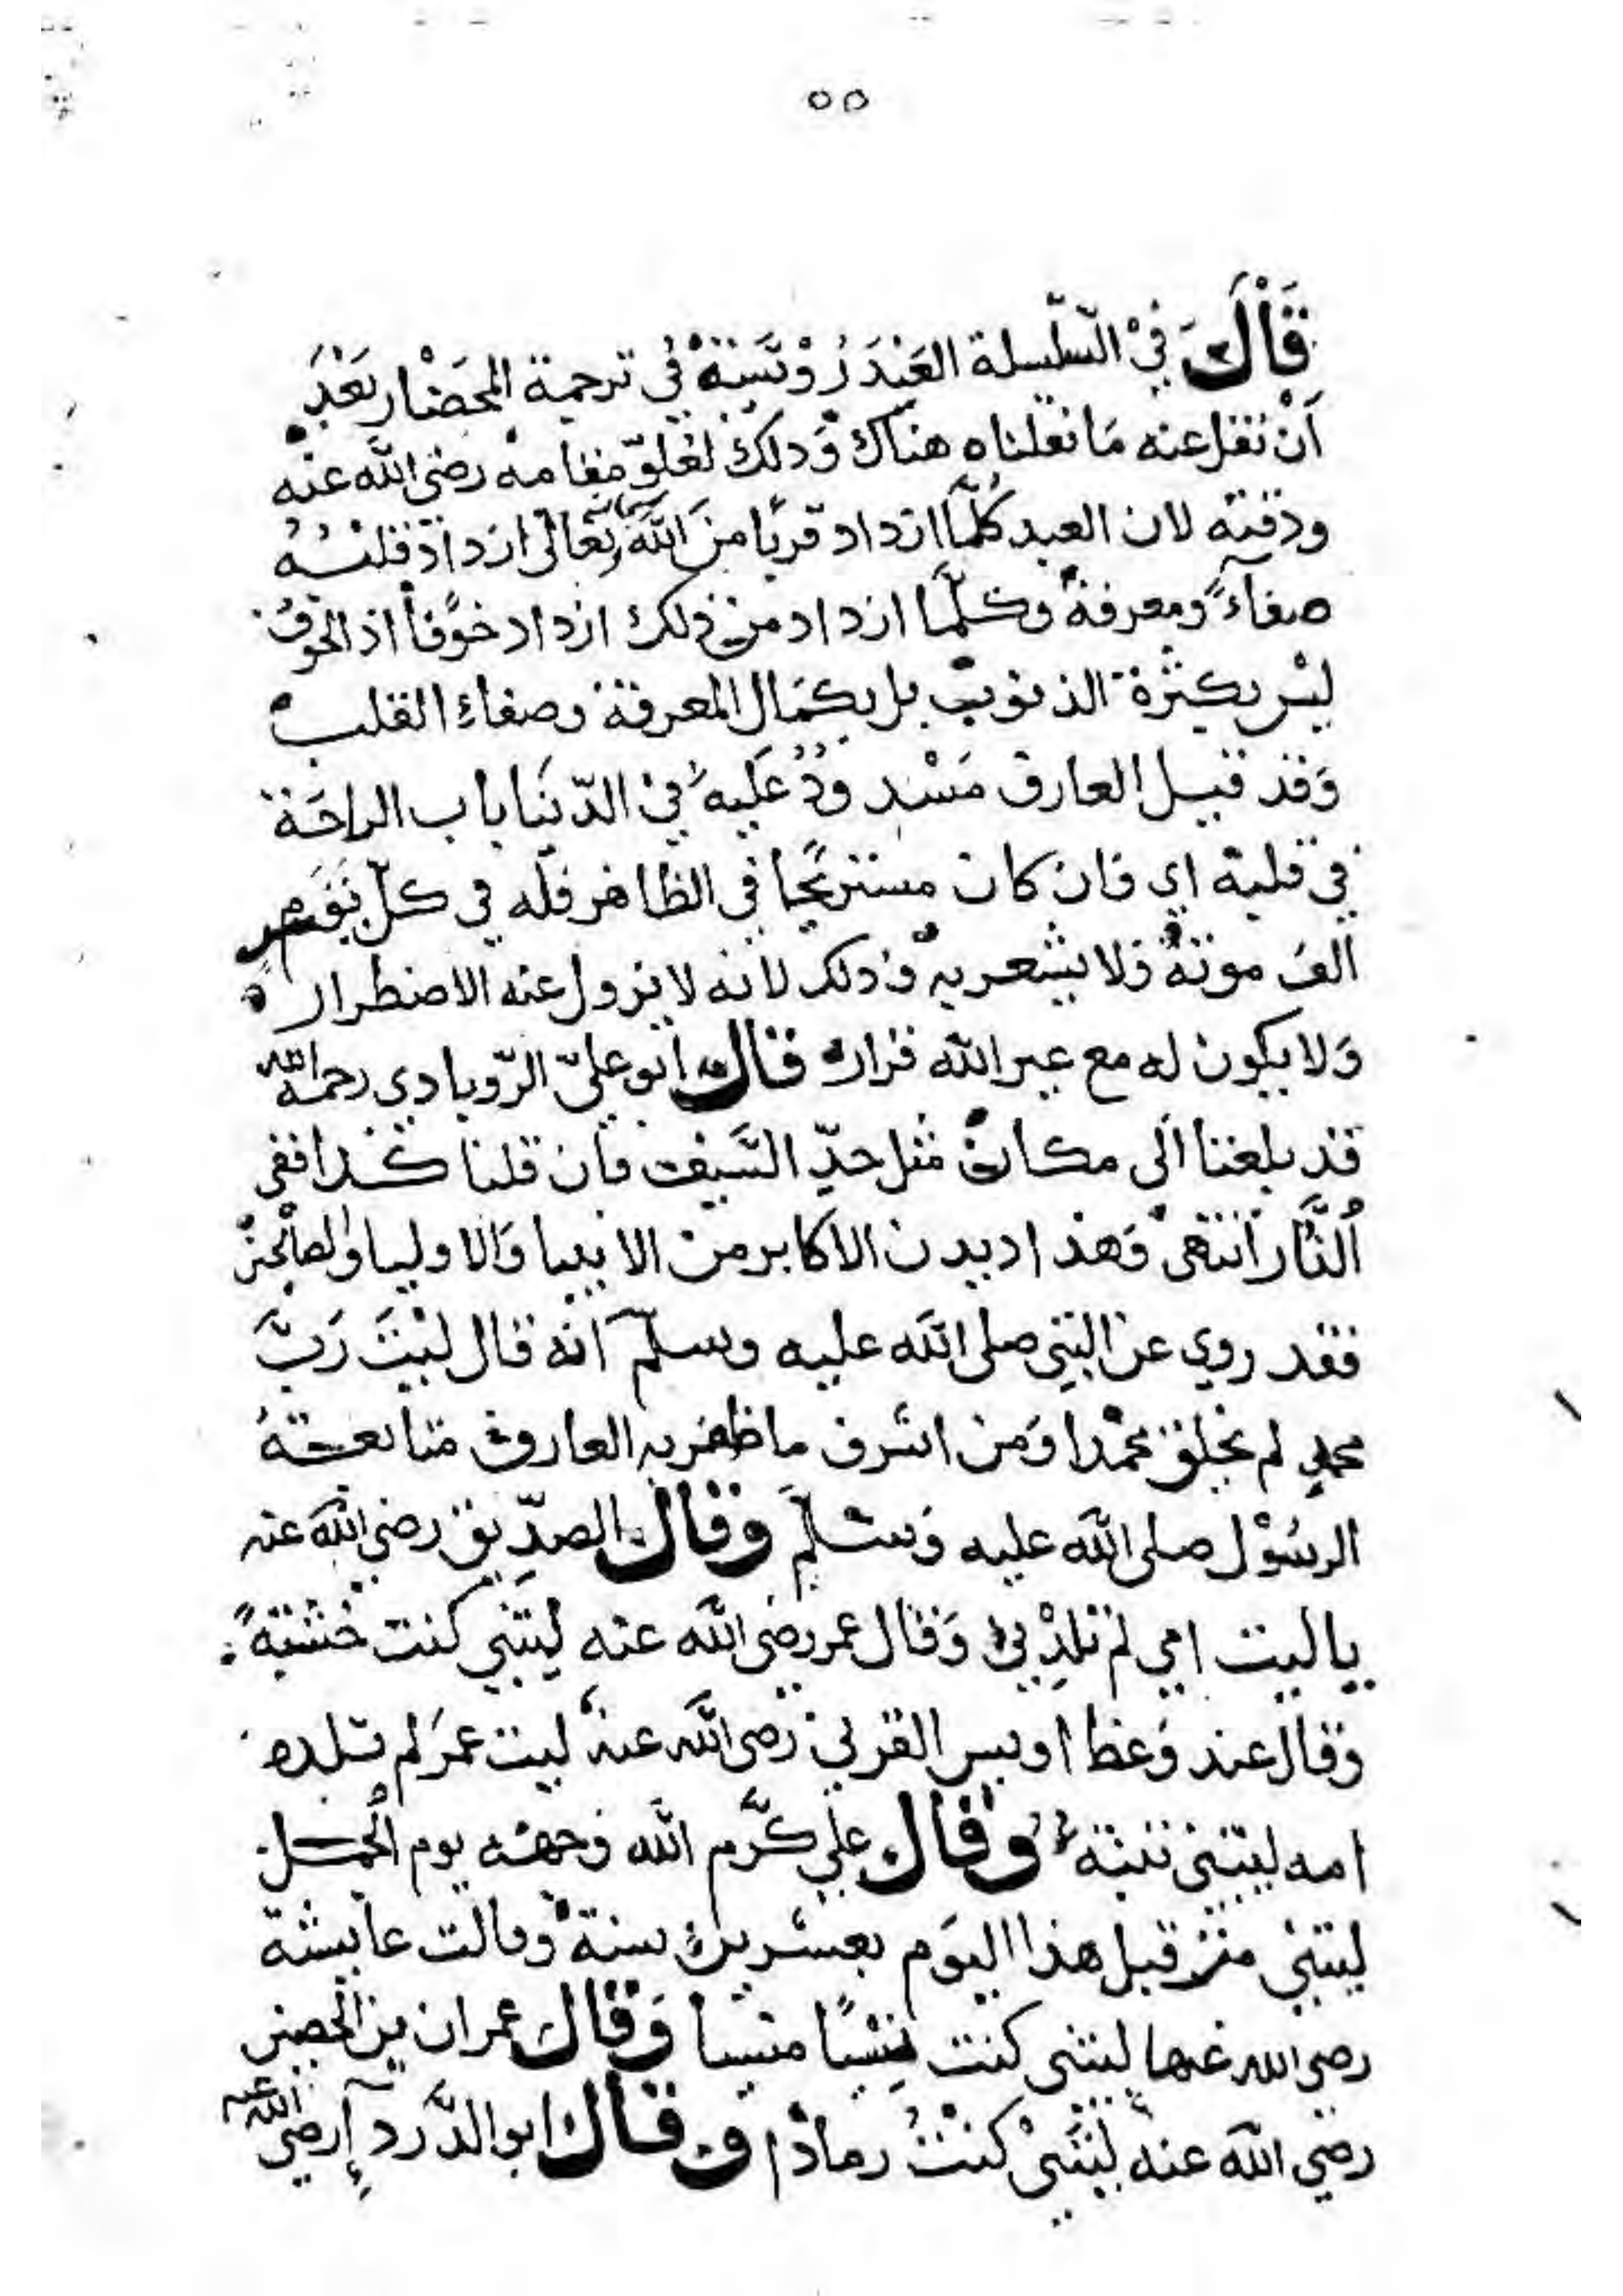 ٥٥
قَالَ في السّلسلة العَيْدَرُوْسَيَّة في ترجمة المحضَار بَعْدَ
أنْ نقل عنه مَا نقلناه هناك وَذلك لعُلوّ مقامه رضي الله عنه
ودقته لان العبد كُلَّمَا ازداد قربًا منَ اللهَ تعَالى ازدادَ قلبُهُ
صفاءً ومعرفةً وكلَّما ازداد من ذلك ازداد خوفًا اذ الخوفُ
ليْس بكثرة الذنوب بل بكمَال المعرفة وصفاءِ القلب
وَقد قيل العارف مَسْدودٌ عَليه في الدّنيَا باب الراحَة
في قلبه اي فان كان مستريحًا في الظاهر فله في كلّ نَفَس
الفُ موتةٌ وَلا يشعر به وَذلك لانه لا يزول عنه الاضطرار
وَلا يكون له مع غير الله قرار قال ابو عليّ الرّوبادي رحمه الله
قد بلغنا الَى مكان مثل حدّ السَّيف فان قلنا كذا ففي
النَّار انتهَى وَهذا ديدن الاكابر من الانبيا وَالاوليا والصالحين
فقد روي عن النبي صلى الله عليه وسلّم انه قال ليْتَ رَبَّ
محمدٍ لم يخلق محمدا وَمن اشرف ما ظفر به العارف متابعة
الرسُوْل صلى الله عليه وَسلّم وقال الصدّيق رضي الله عنه
يا ليت امي لم تلدْني وَقال عمر رضي الله عنه ليتني كنت خشبةً
وَقال عند وَعظ اويس القرني رضي الله عنه ليت عمرَ لم تلده
امه ليتني تبنة وقال علي كرَّم الله وَجهه يوم الجمل
ليتني متّ قبل هذا اليَوم بعشرين سنة وَقالت عايشة
رضي الله عنها ليتني كنت نِسْيًا منسيا وَقال عمران بن الحصين
رضي الله عنه ليْتَنيْ كنْتُ رمادًا وقال ابو الدَّرداء رضي الله عنه